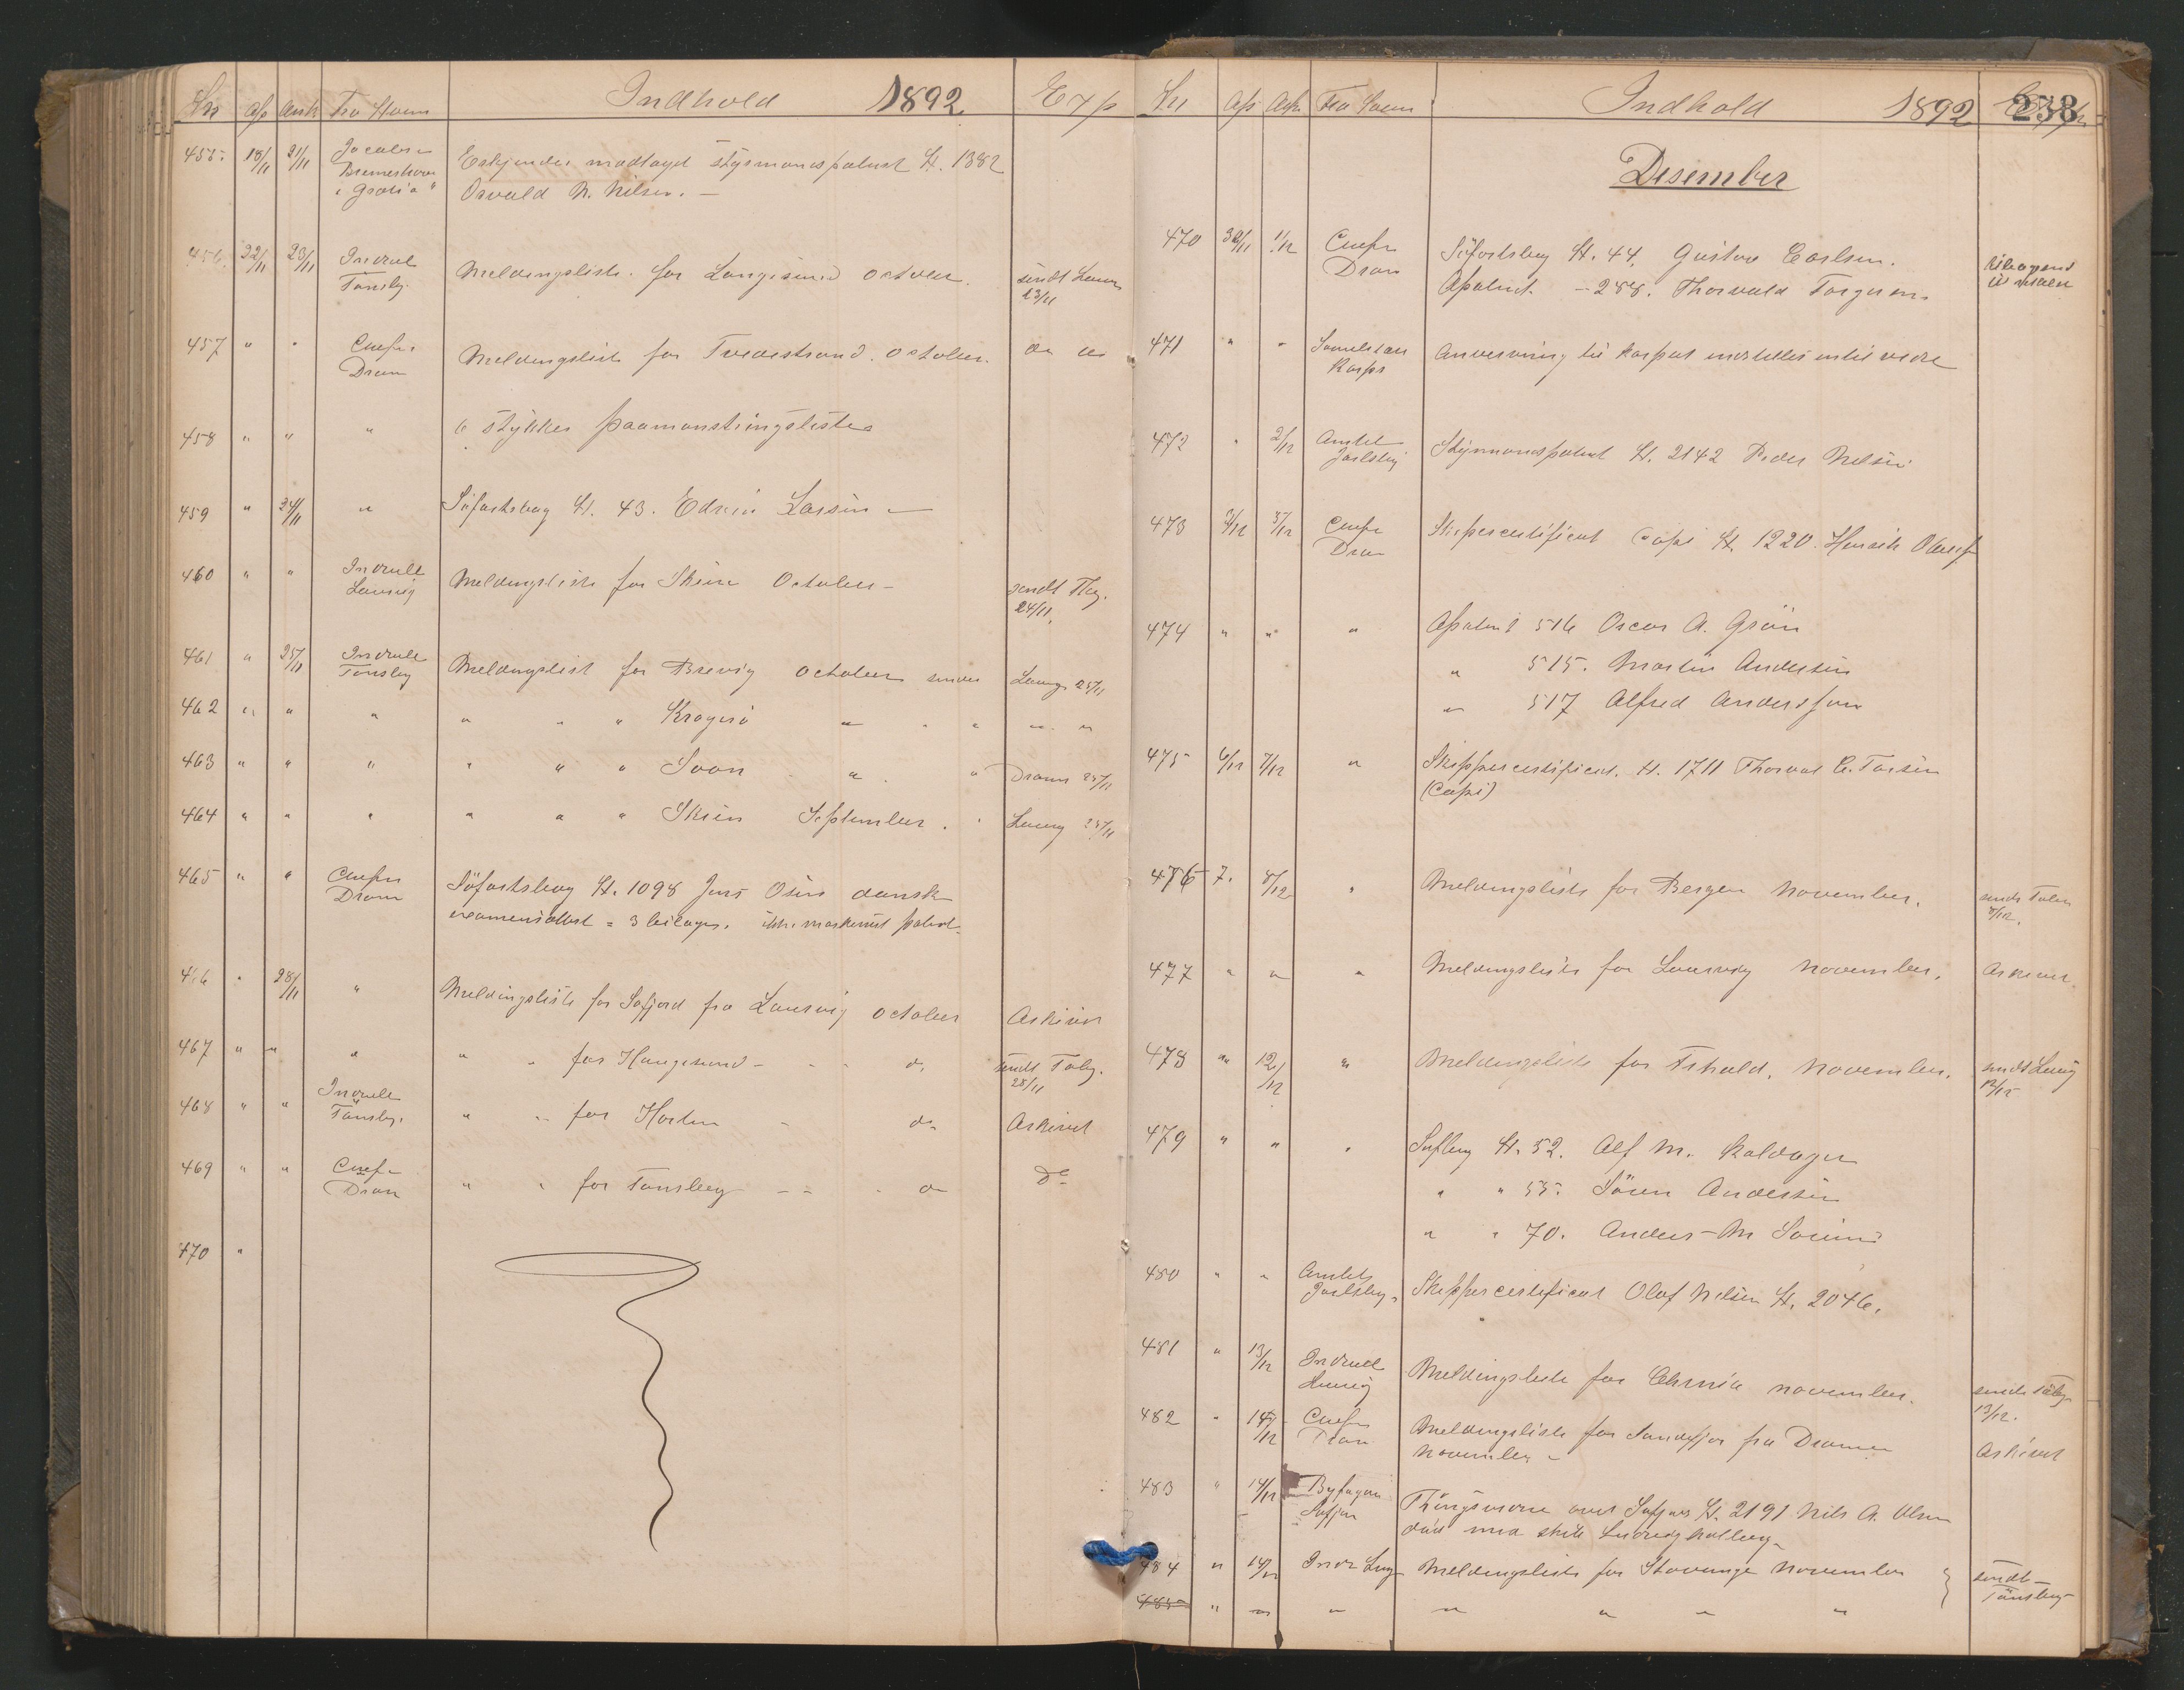 Nr Afs Ank Fra Hvem Indhold 1892 Exp
455. 18/11 21/11 Jacobsen Erkjender modtaget styrmandspatent N. 1382
"Gratia" Osvald N. Nilsen. —
456. 22/11 23/11 Indrull Meldingsliste for Langesund October. sendt Laurv
Tønsbg. 23/11
457 " " Chefen Meldingsliste for Tvedestrand October. do do
Dram
458 " " " 6 stykker paamønstringslister
459 " 24/11 " Søfartsbog N. 43. Edvin Larsen —
460 " " Indrull Meldingsliste for Skien October — sendt Tbg.
Laurvig 24/11.
461 " 25/11 Indrull Meldingslist for Brevig October sendes Laurvg 25/11
Tønsbg
462 " " " " " " Kragerø " " " " "
463 " " " " " " Soon " " Dramm 25/11
464 " " " " " " Skien September. " Laurvg 25/11
465 " " Chefen Søfartsbog N. 1098 Jens Olsen dansk
Dram examensattest = 3 bilager.
466 " 28/11 " Meldingsliste for Safjord fra Laurvig October Arkivet
467 " " " " " for Haugesund — — do sendt Tnbg.
28/11
468 " " Indrull " " for Horten — do Arkivet
Tønsbg.
469 " " Chefen " " for Tønsberg — — do Do
Dram
470 "
Nr Afs Ank Fra hvem Indhold 1892 238
Desember
470 30/11 1/12 Chefen Søfartsbog N. 44. Gustav Carlsen.
Dram Apatent. — 288. Thorvald Torgersen
471 " " Samlelaus Anvisning til
Korps
472 " 2/12 Amtet Styrmandspatent N. 2142 Peder Nelsen
Jarlsbg
473 3/12 5/12 Chefen Skippercertificat Copi N. 1220. Henrik
Dram
474 " " " Apatent 516 Oscar A. Grøn
" 515. Martin Andersen
" 517 Alfred Anderssen
475 6/12 7/12 " Skippercertificat. N. 1711 Thorval C. Larsen
(Copi)
476 7. 8/12 " Meldingsliste for Bergen November. sendt Tnbg
8/12.
477 " " " Meldingsliste for Laurvig November. Arkivet.
478 " 12/12 " Meldingsliste for Fshald. November. sendt Laurvig
12/12
479 " " " Søfbog N. 52. Alf M. Kaldager
" " 55. Søren Andersen
" " 70. Anders M
480 " " Amtet Skippercertificat Olaf Nelsen N. 2046.
Jarlsbrg
481 " 13/12 Indrull Meldingsliste for Chrania November. sendt Tnbg
Laurvig 13/12.
482 " 14/12 Chefen Meldingsliste for Sandefjor fra Drammen
Dram November — Arkivet
483 " 14/12 Byfogden N. 2191 Nils A. Olsen
Safjor død med skib Ludvig Holberg —
484 " 14/12 Indr Lvg Meldingsliste for Stavanger November } sendt
485 " " " " " " " Tønsberg